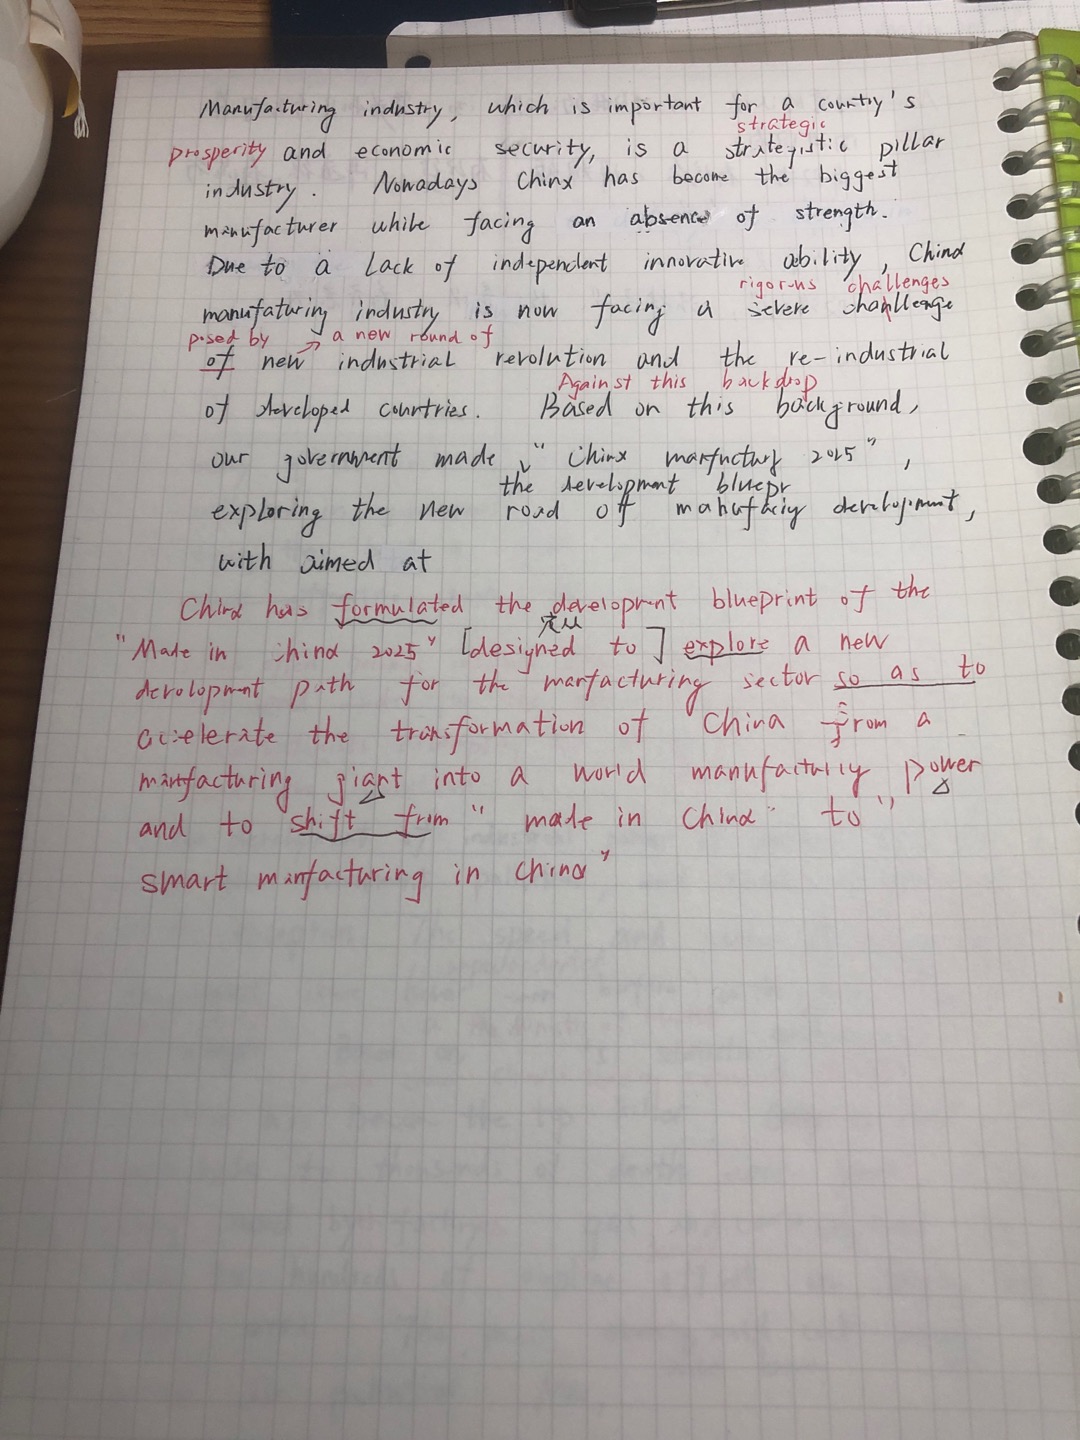 Manufacturing industry, which is important for a country's
strategic
prosperity and economic security, is a strategistic pillar
industry. Nowadays China has become the biggest
manufacturer while facing an absence of strength.
Due to a Lack of independent innovative ability, China
rigorous challenges
manufaturing industry is now facing a severe challenge
posed by a new round of
of new industrial revolution and the re-industrial
of developed countries. Based on this background,
Against this backdrop
our government made "China manfacturg 2025",
the development bluepr
exploring the new road off manufaciy development,
with aimed at
China has formulated the development blueprint of the
定从
"Made in China 2025" [designed to] explore a new
development path for the manfacturing sector so as to
accelerate the transformation of China from a
manfacturing giant into a world manufacturing power
and to shift from "made in China" to "
smart manfacturing in China"